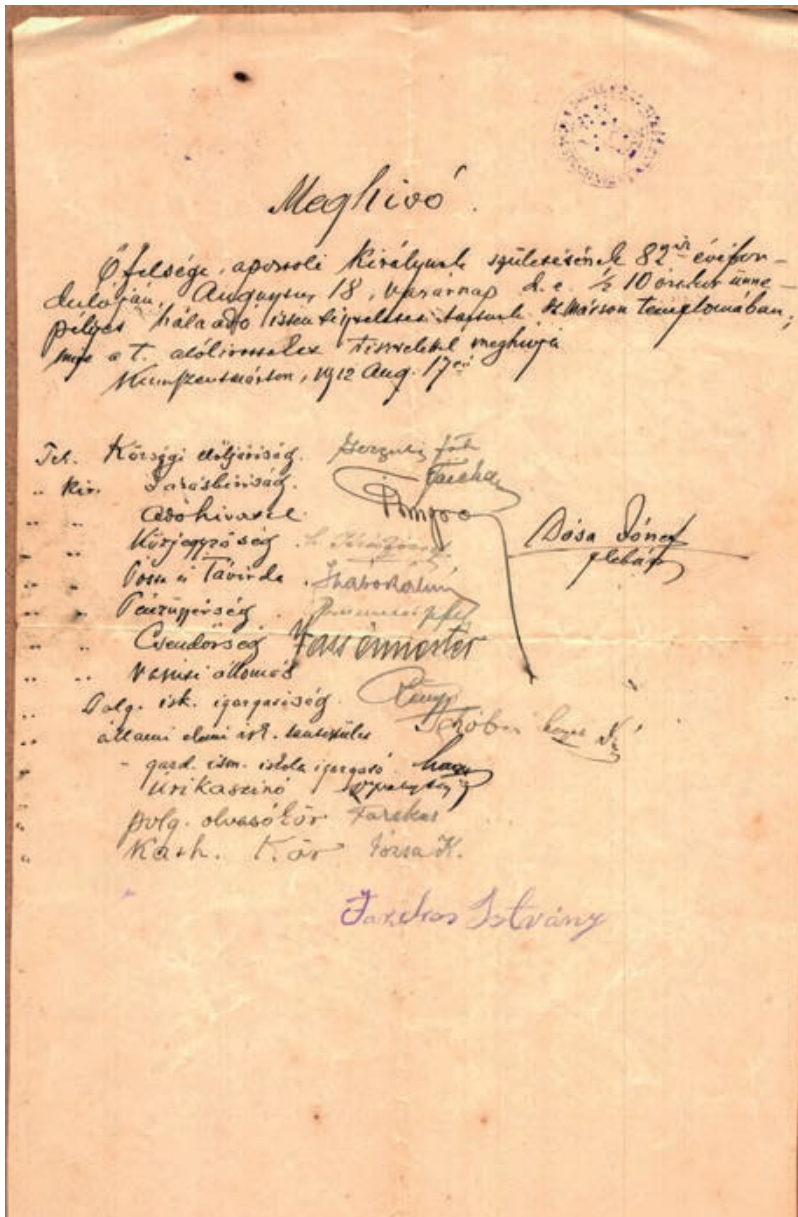 Meghivó.
Ő felsége, apostoli Királyunk születésének 82ik évfor-
dulóján, Augusztus 18, vasarnap d. e. ½ 10 órakor ünne-
pélyes hálaadó istentiszteletet tartunk Sz Márton templomában,
mire a t. alólirottakat tisztelettel meghivja
Kunszentmárton, 1912 Aug. 17én
Tek. Községi elöljáróság.
" Kir. Járásbiróság.
" " Adóhivatal
" " Közjegyzőség
" " Posta és Távirda Szabó Kálmán
" " Pénzügyőrség
" " Csendőrség Vass őrmester
" " Vasuti állomás
Dósa József
plebános
" Polg. isk. igazgatóság
" állami elemi isk. tantestület
" - gazd. ism. iskola igazgató
" Úrikaszinó
" polg. olvasó kör Farkas
" Kath. Kör Józsa K.
Farkas István